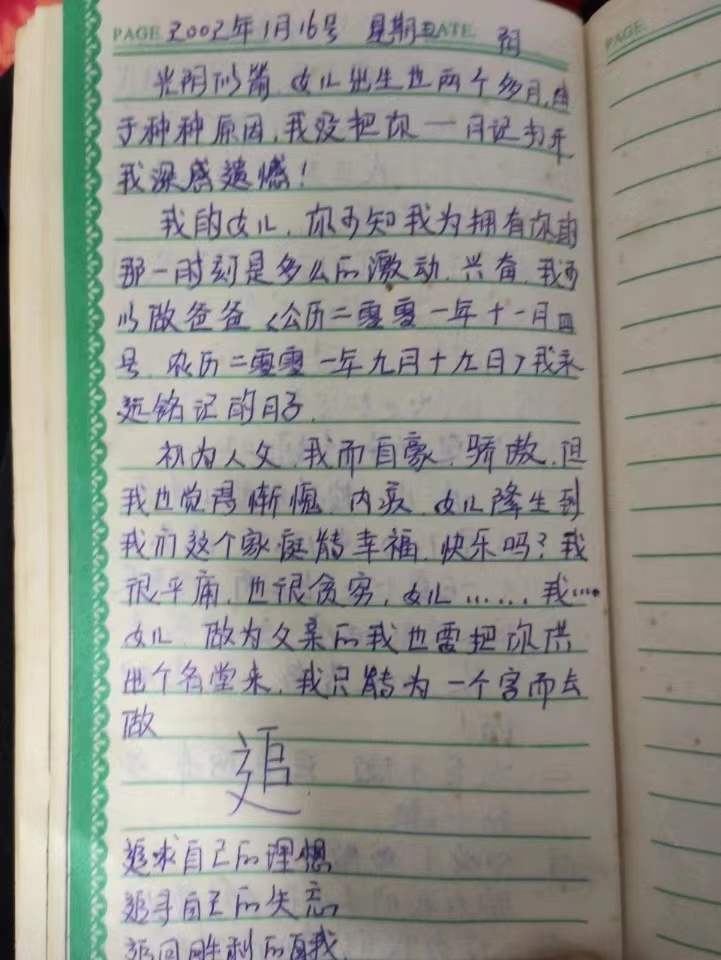 PAGE 2002年1月16号 星期五 DATE 阴
光阴似箭,女儿出生也两个多月,由
于种种原因,我没把你一一日记书开
我深感遗憾!
我的女儿,你可知我为拥有你的
那一时刻是多么的激动,兴奋,我可
以做爸爸(公历二零零一年十一月四
号,农历二零零一年九月十九日)我永
远铭记的日子.
初为人父,我而自豪,骄傲,但
我也觉得惭愧,内疚,女儿降生到
我们这个家庭能幸福,快乐吗?我
很平庸,也很贫穷,女儿……我…
女儿,做为父亲的我也需把你供
出个名堂来,我只能为一个字而去
做
追
追求自己的理想
追寻自己的失忘
追回胜利的自我
PAGE